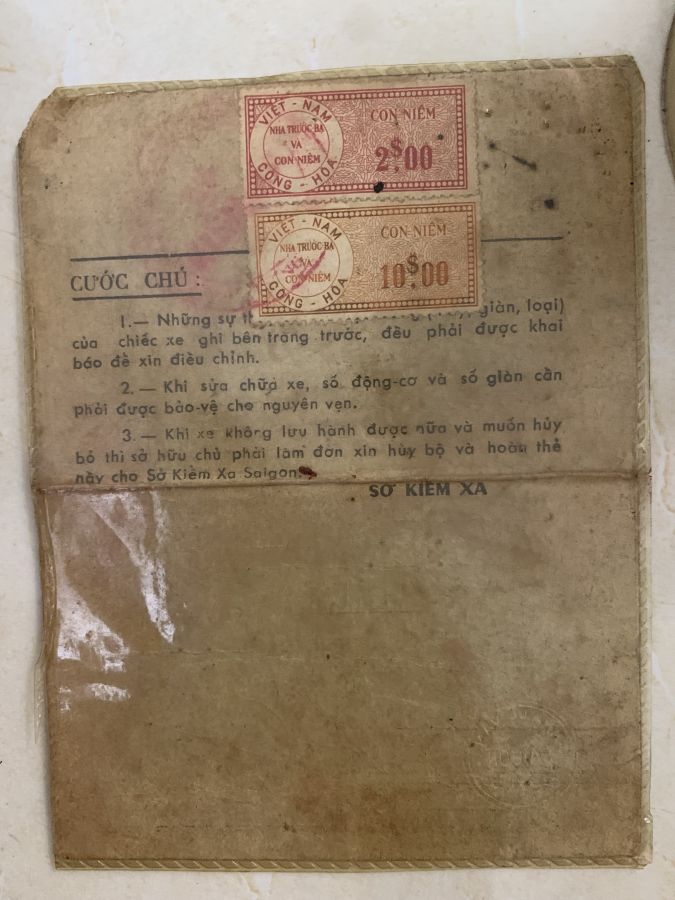 VIỆT - NAM
NHA TRƯỚC BẠ
VÀ
CON NIÊM
CỘNG - HÒA
CON NIÊM
2$00
VIỆT - NAM
NHA TRƯỚC BẠ
VÀ
CON NIÊM
CỘNG - HÒA
CON NIÊM
10$00
CƯỚC CHÚ :
1.— Những sự giàn, loại)
của chiếc xe ghi bên trang trước, đều phải được khai
báo để xin điều chỉnh.
2.— Khi sửa chữa xe, số động-cơ và số giàn cần
phải được bảo-vệ cho nguyên vẹn.
3.— Khi xe không lưu hành được nữa và muốn hủy
bỏ thì sở hữu chủ phải làm đơn xin hủy bộ và hoàn thẻ
nầy cho Sở Kiểm Xa Saigon.
SỞ KIỂM XA